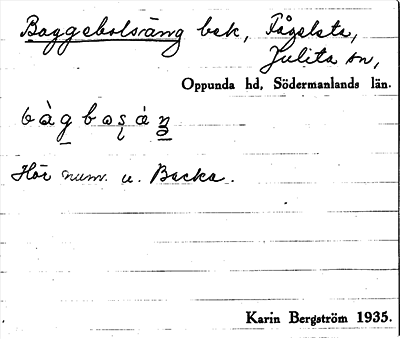 Baggebolsäng bek, Fågelsta,
Julita sn,
Oppunda hd, Södermanlands län.
Hör num. u. Backa.
Karin Bergström 1935.